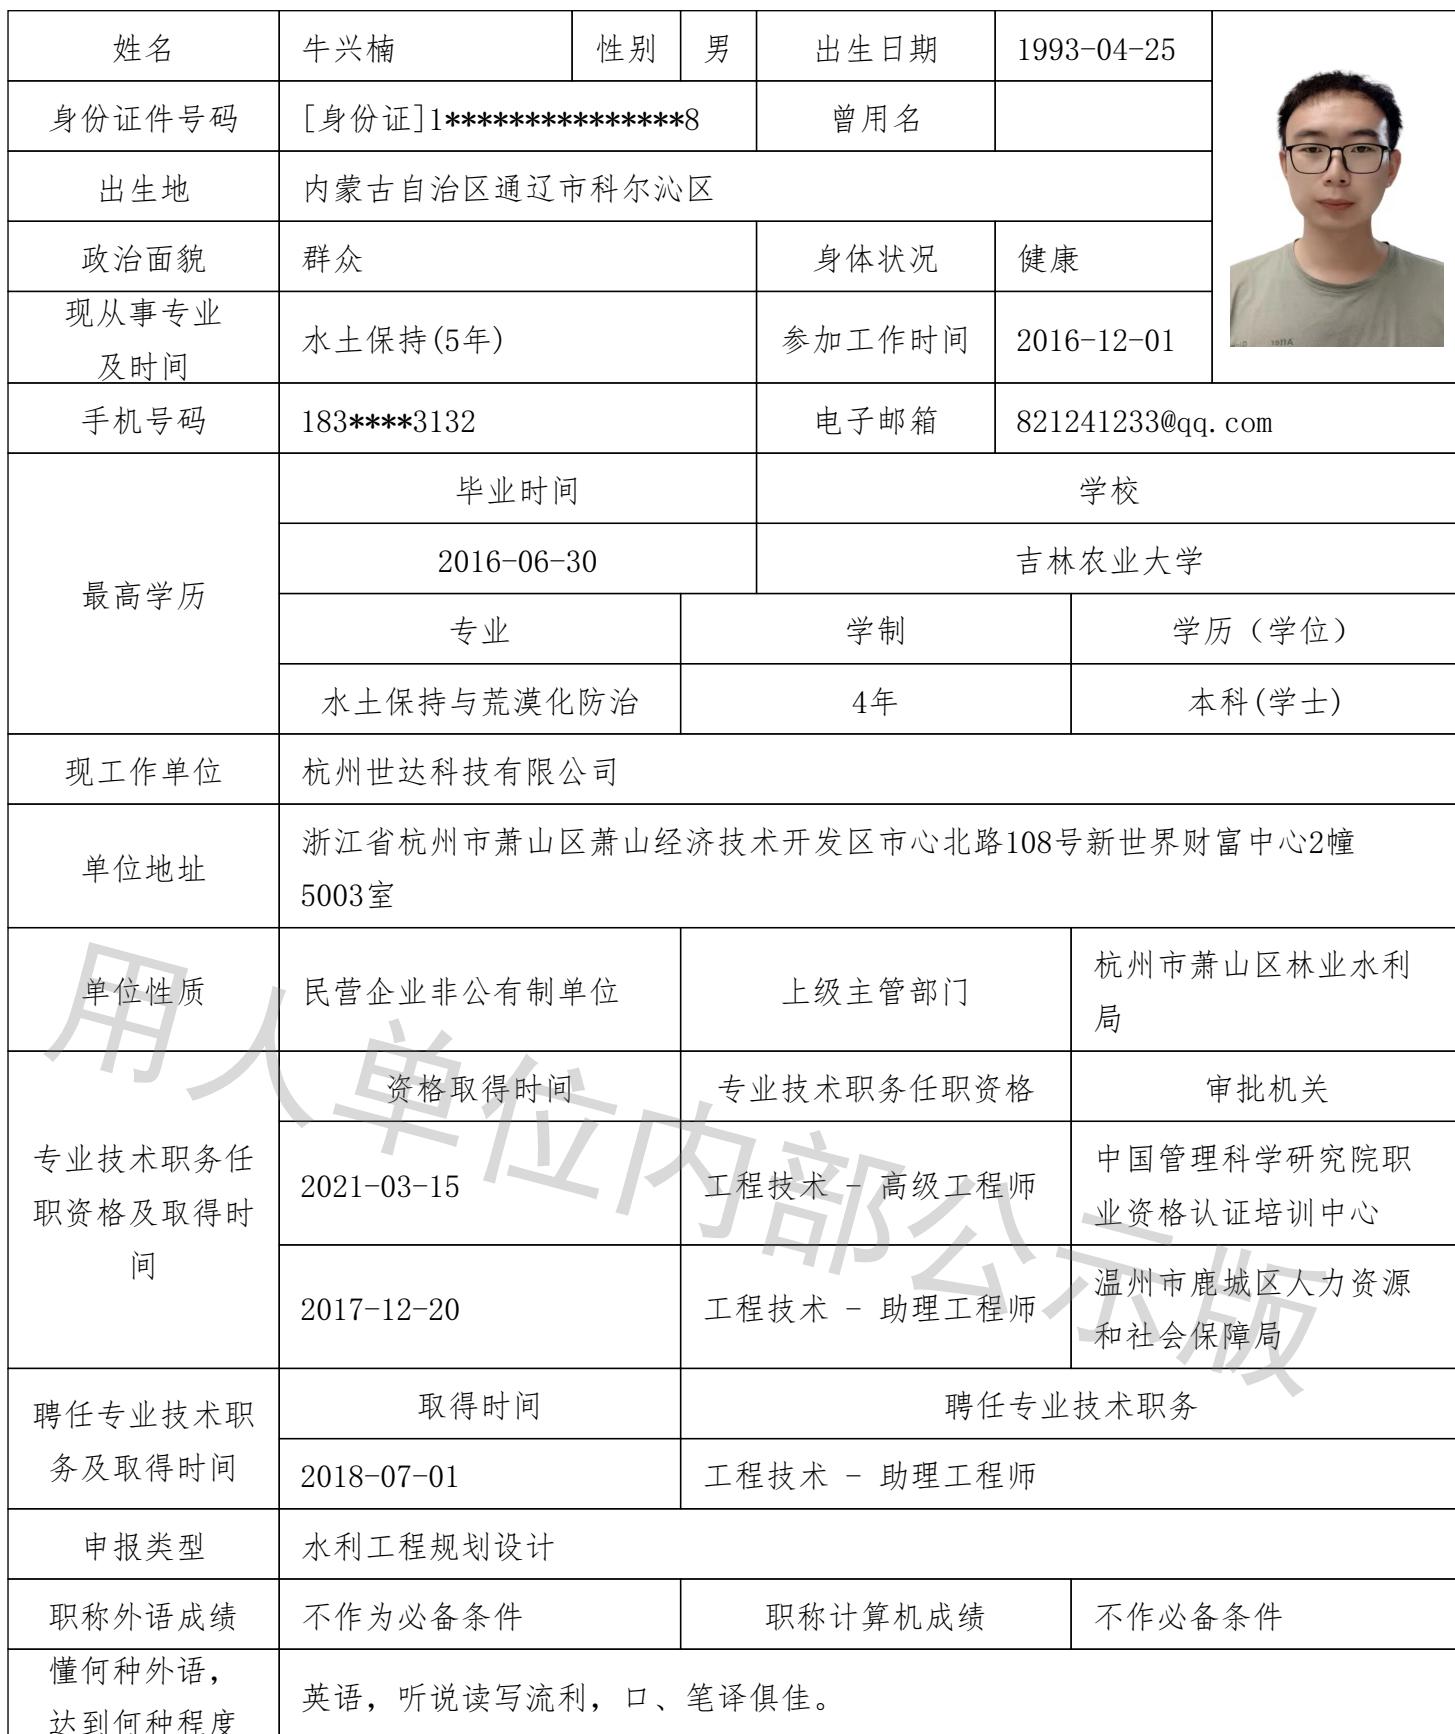 姓名 牛兴楠 性别 男 出生日期 1993-04-25
身份证件号码 [身份证]1***************8 曾用名
出生地 内蒙古自治区通辽市科尔沁区
政治面貌 群众 身体状况 健康
现从事专业
及时间 水土保持(5年) 参加工作时间 2016-12-01
手机号码 183****3132 电子邮箱 821241233@qq.com
最高学历
毕业时间 学校
2016-06-30 吉林农业大学
专业 学制 学历（学位）
水土保持与荒漠化防治 4年 本科(学士)
现工作单位 杭州世达科技有限公司
单位地址
浙江省杭州市萧山区萧山经济技术开发区市心北路108号新世界财富中心2幢
5003室
单位性质 民营企业非公有制单位 上级主管部门
杭州市萧山区林业水利
局
专业技术职务任
职资格及取得时
间
资格取得时间 专业技术职务任职资格 审批机关
2021-03-15 工程技术 - 高级工程师
中国管理科学研究院职
业资格认证培训中心
2017-12-20 工程技术 - 助理工程师
温州市鹿城区人力资源
和社会保障局
聘任专业技术职
务及取得时间
取得时间 聘任专业技术职务
2018-07-01 工程技术 - 助理工程师
申报类型 水利工程规划设计
职称外语成绩 不作为必备条件 职称计算机成绩 不作必备条件
懂何种外语，
达到何种程度
英语，听说读写流利，口、笔译俱佳。
用人单位内部公示版